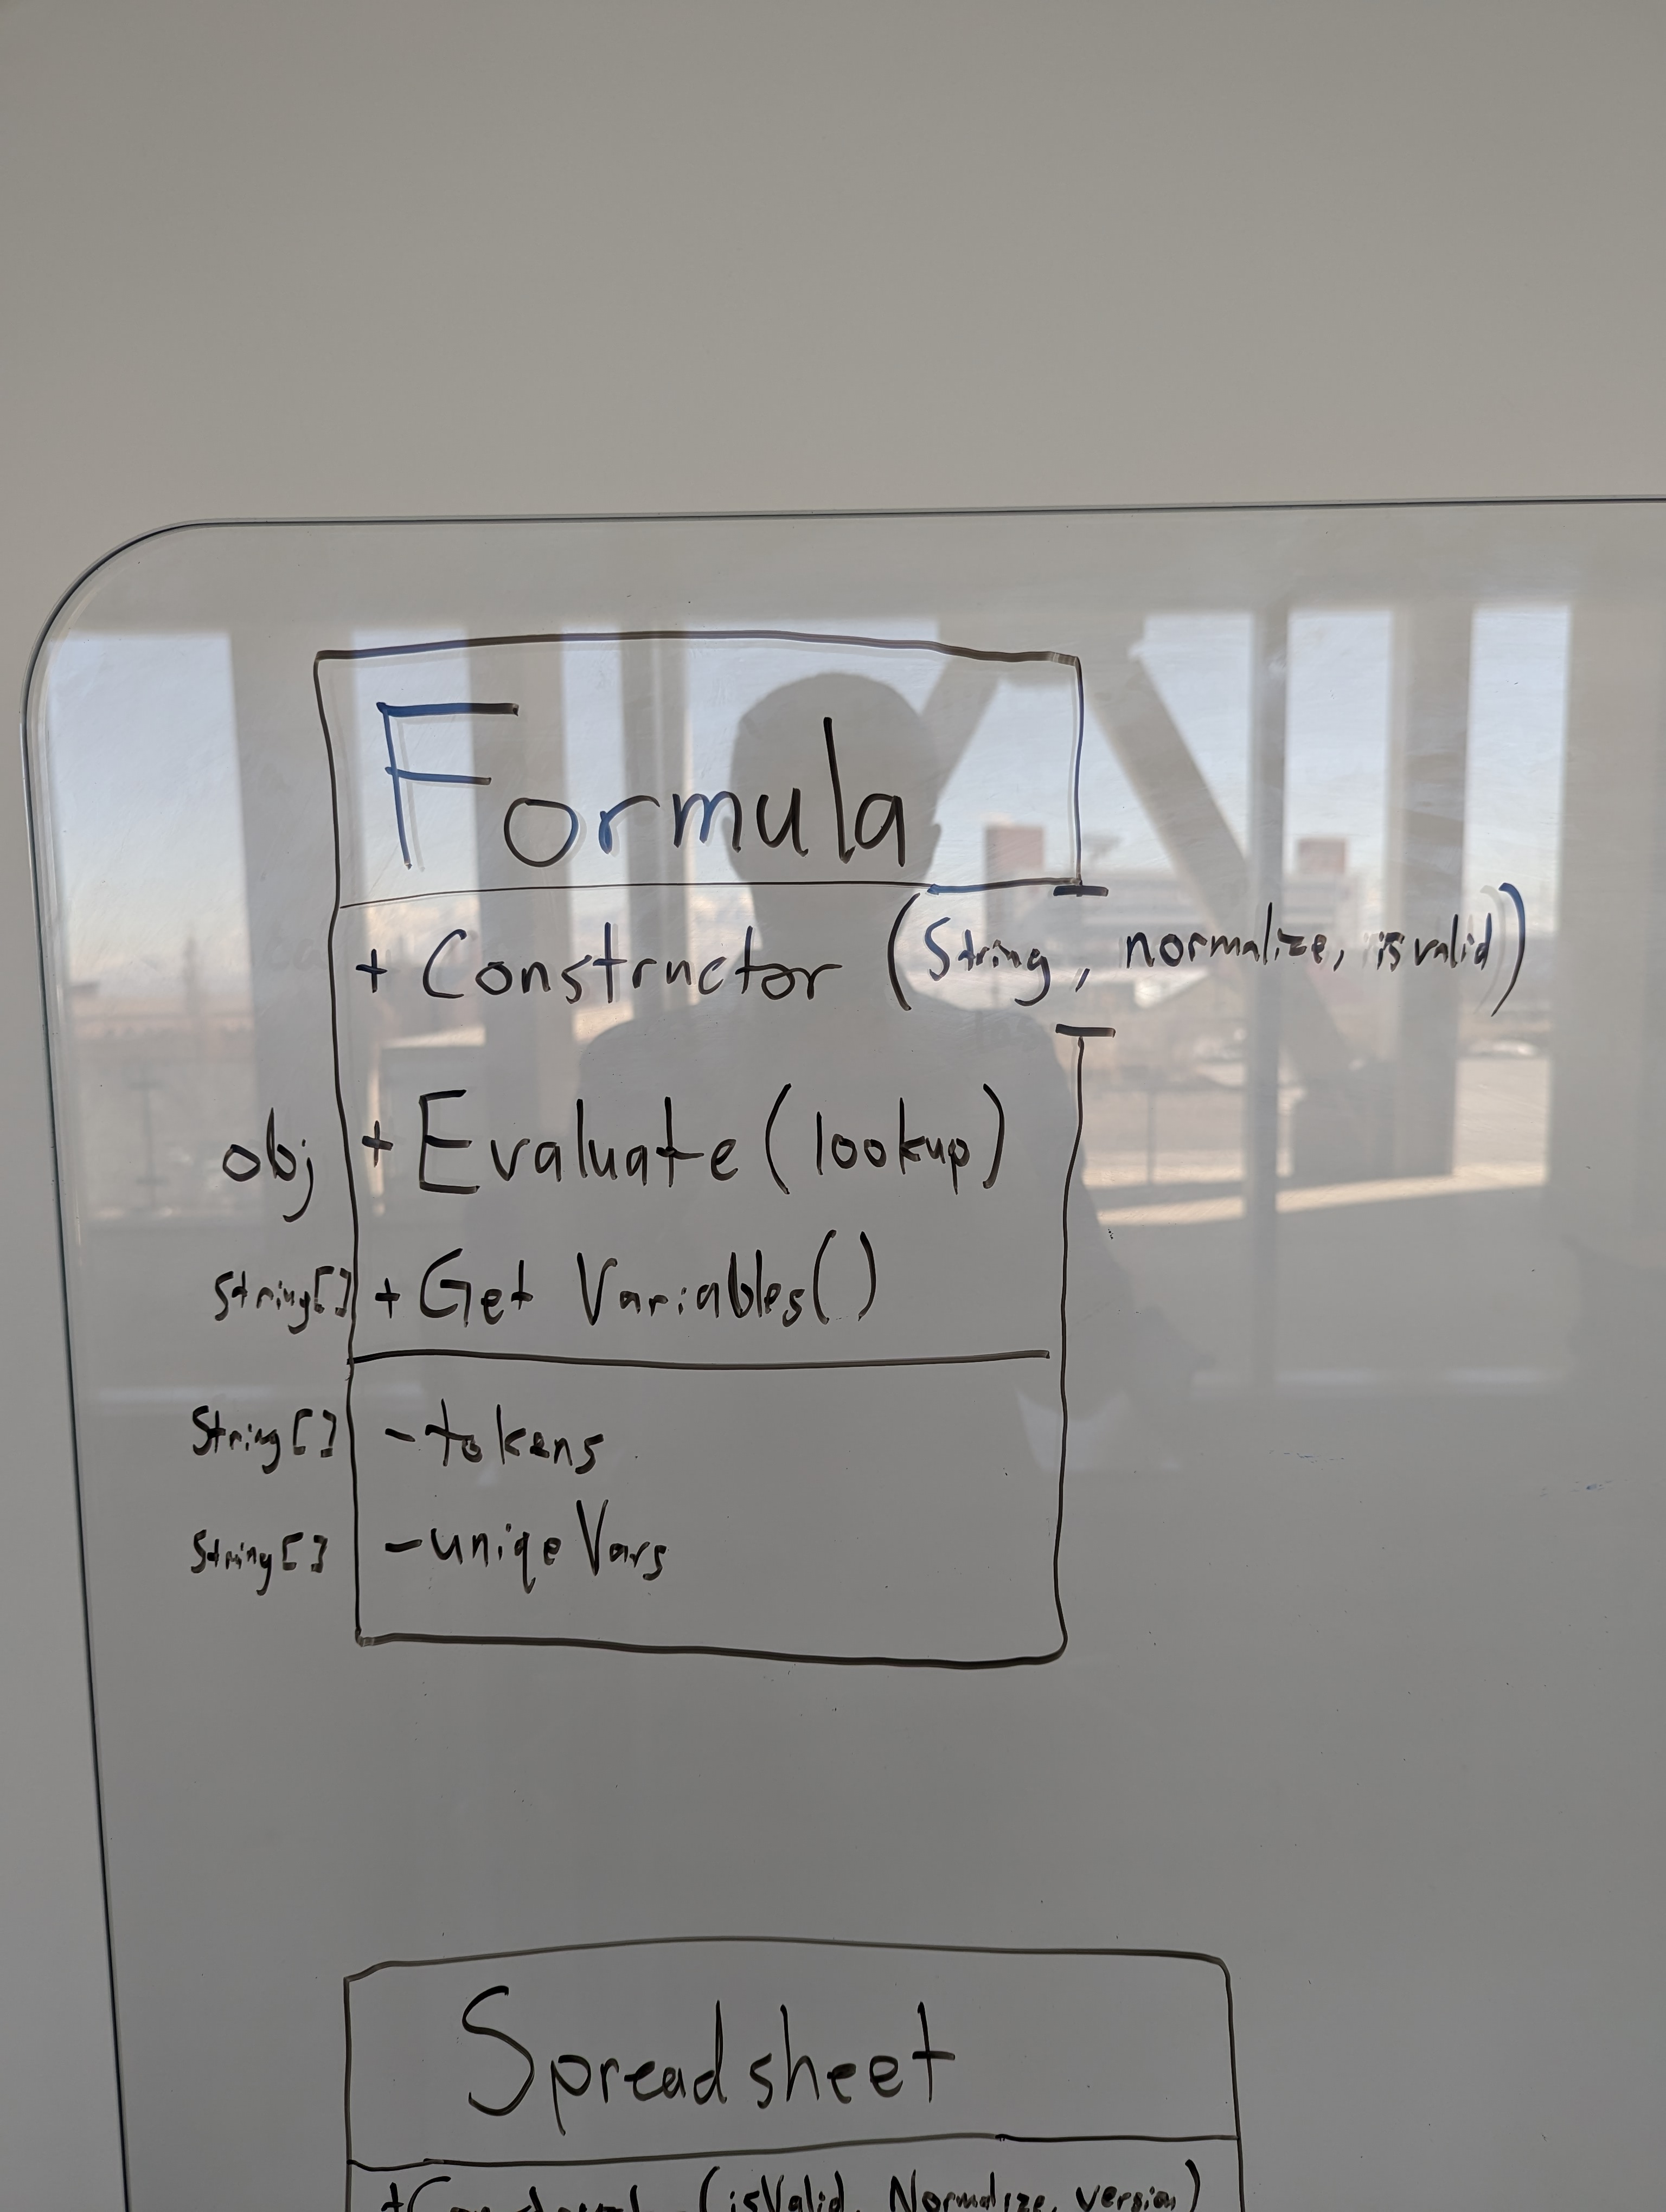 Formula
+ Constructor (String, normalize, isvalid)
obj + Evaluate (lookup)
String[] + Get Variables()
String[] - tokens
String[] - uniqeVars
Spreadsheet
(isValid, Normalize, version)